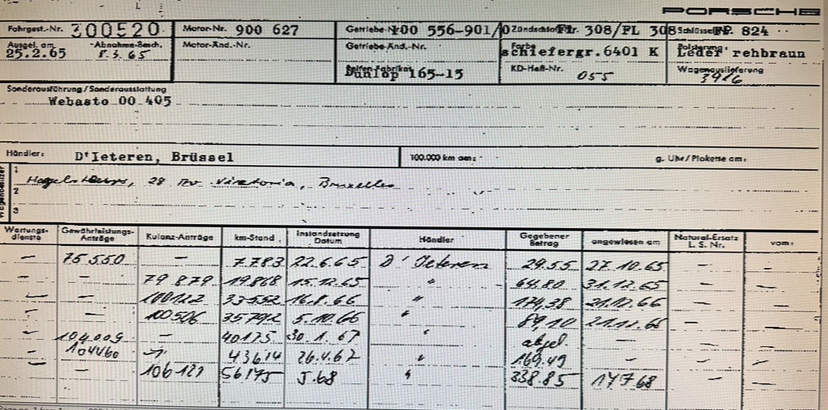 PORSCHE
Fahrgest.-Nr. 300520 Motor-Nr. 900 627 Getriebe-Nr. 100 556-901/0 Zündschloß Nr. 308/PL 308 Schlüssel Nr. P. 824
Ausgel. am 25.2.65 Abnahme-Besch. 8.3.65 Motor-Änd.-Nr. Getriebe-Änd.-Nr. Farbe schiefergr.6401 K Polsterung Leder rehbraun
Reifen-Fabrikat Dunlop 165-15 KD-Heft-Nr. 055 Wagenauslieferung 3416
Sonderausführung / Sonderausstattung
Webasto 00 405
Händler: D'Ieteren, Brüssel 100.000 km am: g. Uhr/Plakette am:
Wagenbesitzer
1 28 Bruxelles
2
3
Wartungs-dienste Gewährleistungs-Anträge Kulanz-Anträge km-Stand Instandsetzung Datum Händler Gegebener Betrag angewiesen am Natural-Ersatz L. S. Nr. vom:
— 75550 — 7783 22.6.65 D'Ieteren 29.55 27.10.65 — —
— — 79 879 19868 15.12.65 " 64.80 31.12.65 — —
— — 100122 33552 16.8.66 " 174,38 21.12.66 — —
— — 100506 35792 5.10.66 " 89,10 21.11.66 — —
— 104009 — 40175 30.1.67 " abgel. — — —
— 104460 — 43614 26.4.67 " 169.49 — — —
— — 106121 56175 5.68 " 338.85 17.7.68 — —